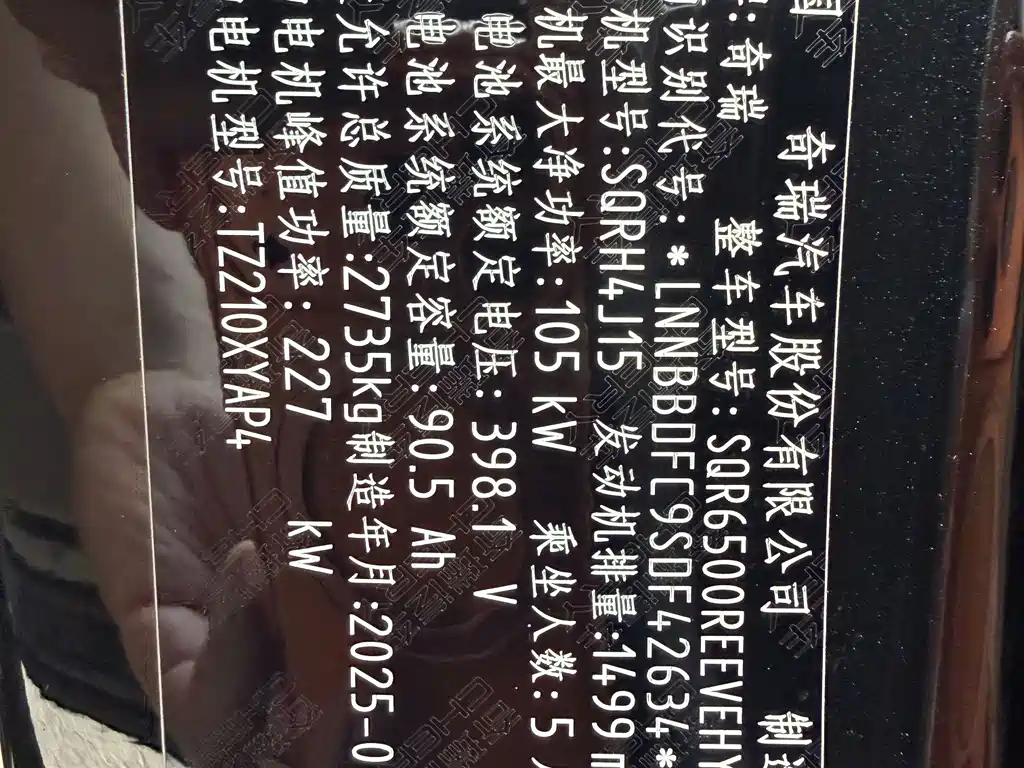 国 奇瑞汽车股份有限公司 制造
: 奇瑞 整车型号: SQR6500REEVEHY
识别代号: *LNNBBDFC9SDF42634*
机型号:SQRH4J15 发动机排量:1499 m
机最大净功率:105 kW 乘坐人数: 5 人
电池系统额定电压: 398.1 V
电池系统额定容量: 90.5 Ah
允许总质量:2735kg制造年月:2025-0
电机峰值功率: 227 kW
电机型号:TZ210XYAP4